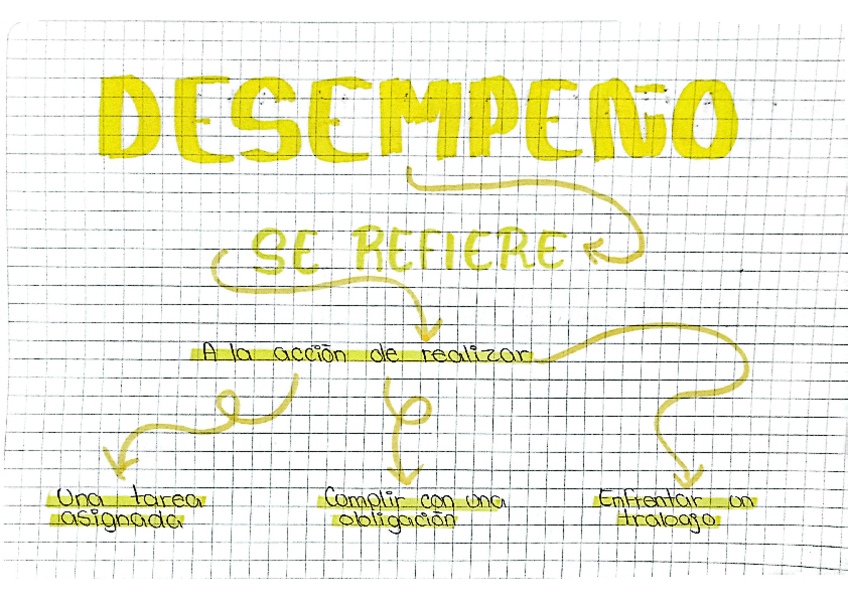 DESEMPEÑO
SE REFIERE
A la acción de realizar
Una tarea
asignada
Cumplir con una
obligación
Enfrentar un
trabajo